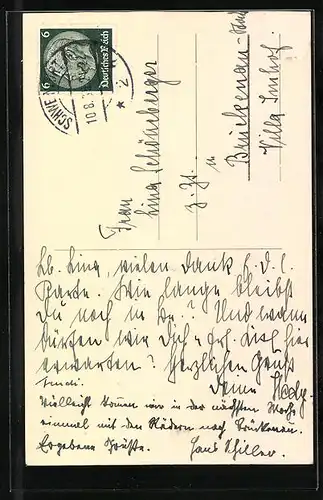 6 Deutsches Reich 6
10.8.
Frau
Lina Schöneberger
z. Zt. in
Brückenau-
Villa Imhof.
Lb. Lina, vielen Dank f. d. l.
Karte. Wie lange bleibst
Du noch in Br.? Und wann
dürfen wir Dich hier
erwarten? Herzlichen Gruß
Deine Hedy.
Vielleicht kommen wir in der nächsten Woche
einmal mit den Rädern nach Brückenau.
Ergebene Grüße. Hans Schiller.